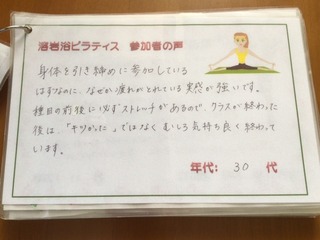 溶岩浴ピラティス 参加者の声
身体を引き締めに参加している
はずなのに、なぜか疲れがとれている実感が強いです。
種目の前後に必ずストレッチがあるので、クラスが終わった
後は、「キツかった」ではなくむしろ気持ち良く終わって
います。
年代: 30 代